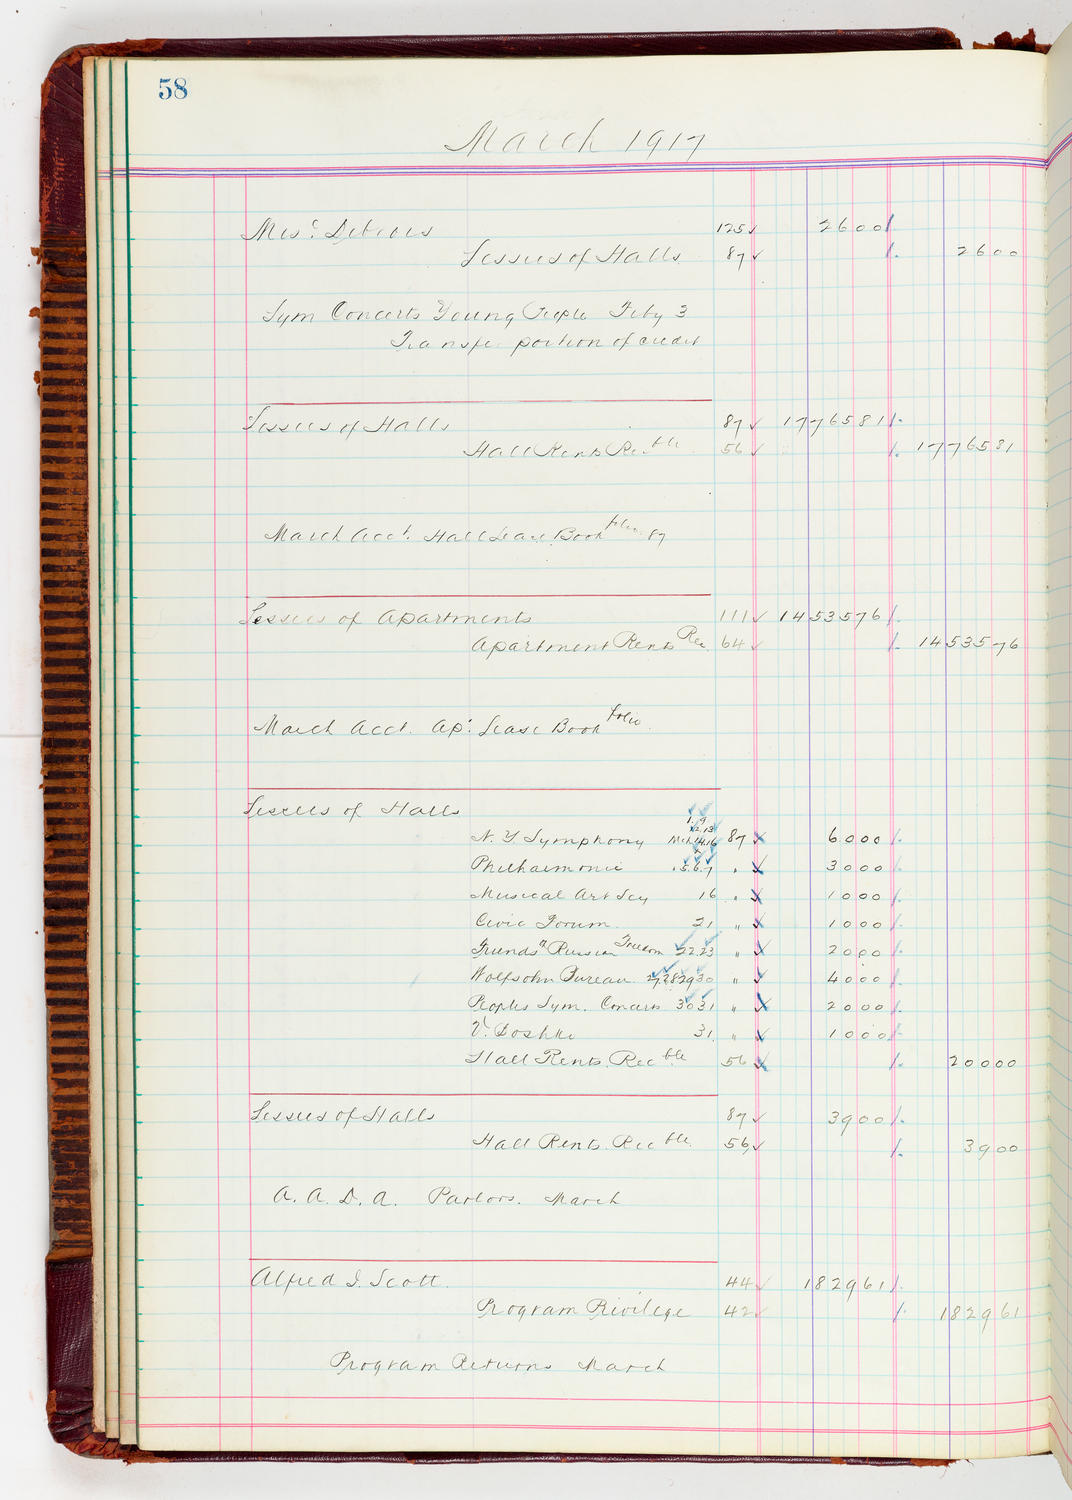 58
March 1917
Misc. Debtors 125 ✓ 2600 /.
Lessees of Halls 87 ✓ /. 2600
Sym Concerts Young People Feby 3
Transfer portion of credit
Lessees of Halls 87 ✓ 1776581 /.
Hall Rents Recble 56 ✓ /. 1776581
March Acct. Hall Lease Book folio 87
Lessees of Apartments 111 ✓ 1453576 /.
Apartment Rents Rec 64 ✓ /. 1453576
March Acct. Ap. Lease Book folio
Lessees of Halls
N. Y Symphony Mch 1. 9 12. 13 14.16 87 6000 /.
Philharmonic 5.6.7 " 3000 /.
Musical Art Scy 16 " 1000 /.
Civic Forum 21 " 1000 /.
Friends of Russian Freedom 22.23 " 2000 /.
Wolfsohn Bureau 27.28 29 30 " 4000 /.
Peoples Sym. Concerts 30 31 " 2000 /.
V. Doshke 31 " 1000 /.
Hall Rents Recble 56 /. 20000
Lessees of Halls 87 ✓ 3900 /.
Hall Rents. Recble. 56 ✓ /. 3900
A. A. D. A. Parlors. March
Alfred I. Scott. 44 ✓ 182961 /.
Program Privilege 42 ✓ /. 182961
Program Returns March